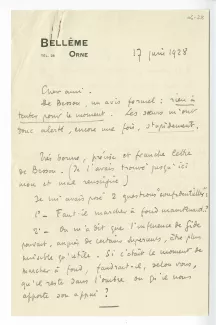 BELLÊME
TEL. 28 ORNE
17 juin 1928
Cher ami.
De Besson, un avis formel : rien à
tenter pour le moment. Les sœurs m'ont
donc alerté, encore une fois, stupidement.
Très bonne, précise et franche lettre
de Besson. (Je l'avais trouvé jusqu'ici
mou et mal renseigné)
Je lui avais posé 2 questions confidentielles :
1°- Faut-il marcher à fond maintenant ?
2°- On m'a dit que l'influence de Gide
pouvait, auprès de certains supérieurs, être plus
nuisible qu'utile. Si c'était le moment de
marcher à fond, faudrait-il, selon vous,
qu'il reste dans l'ombre ou qu'il nous
apporte son appui ?